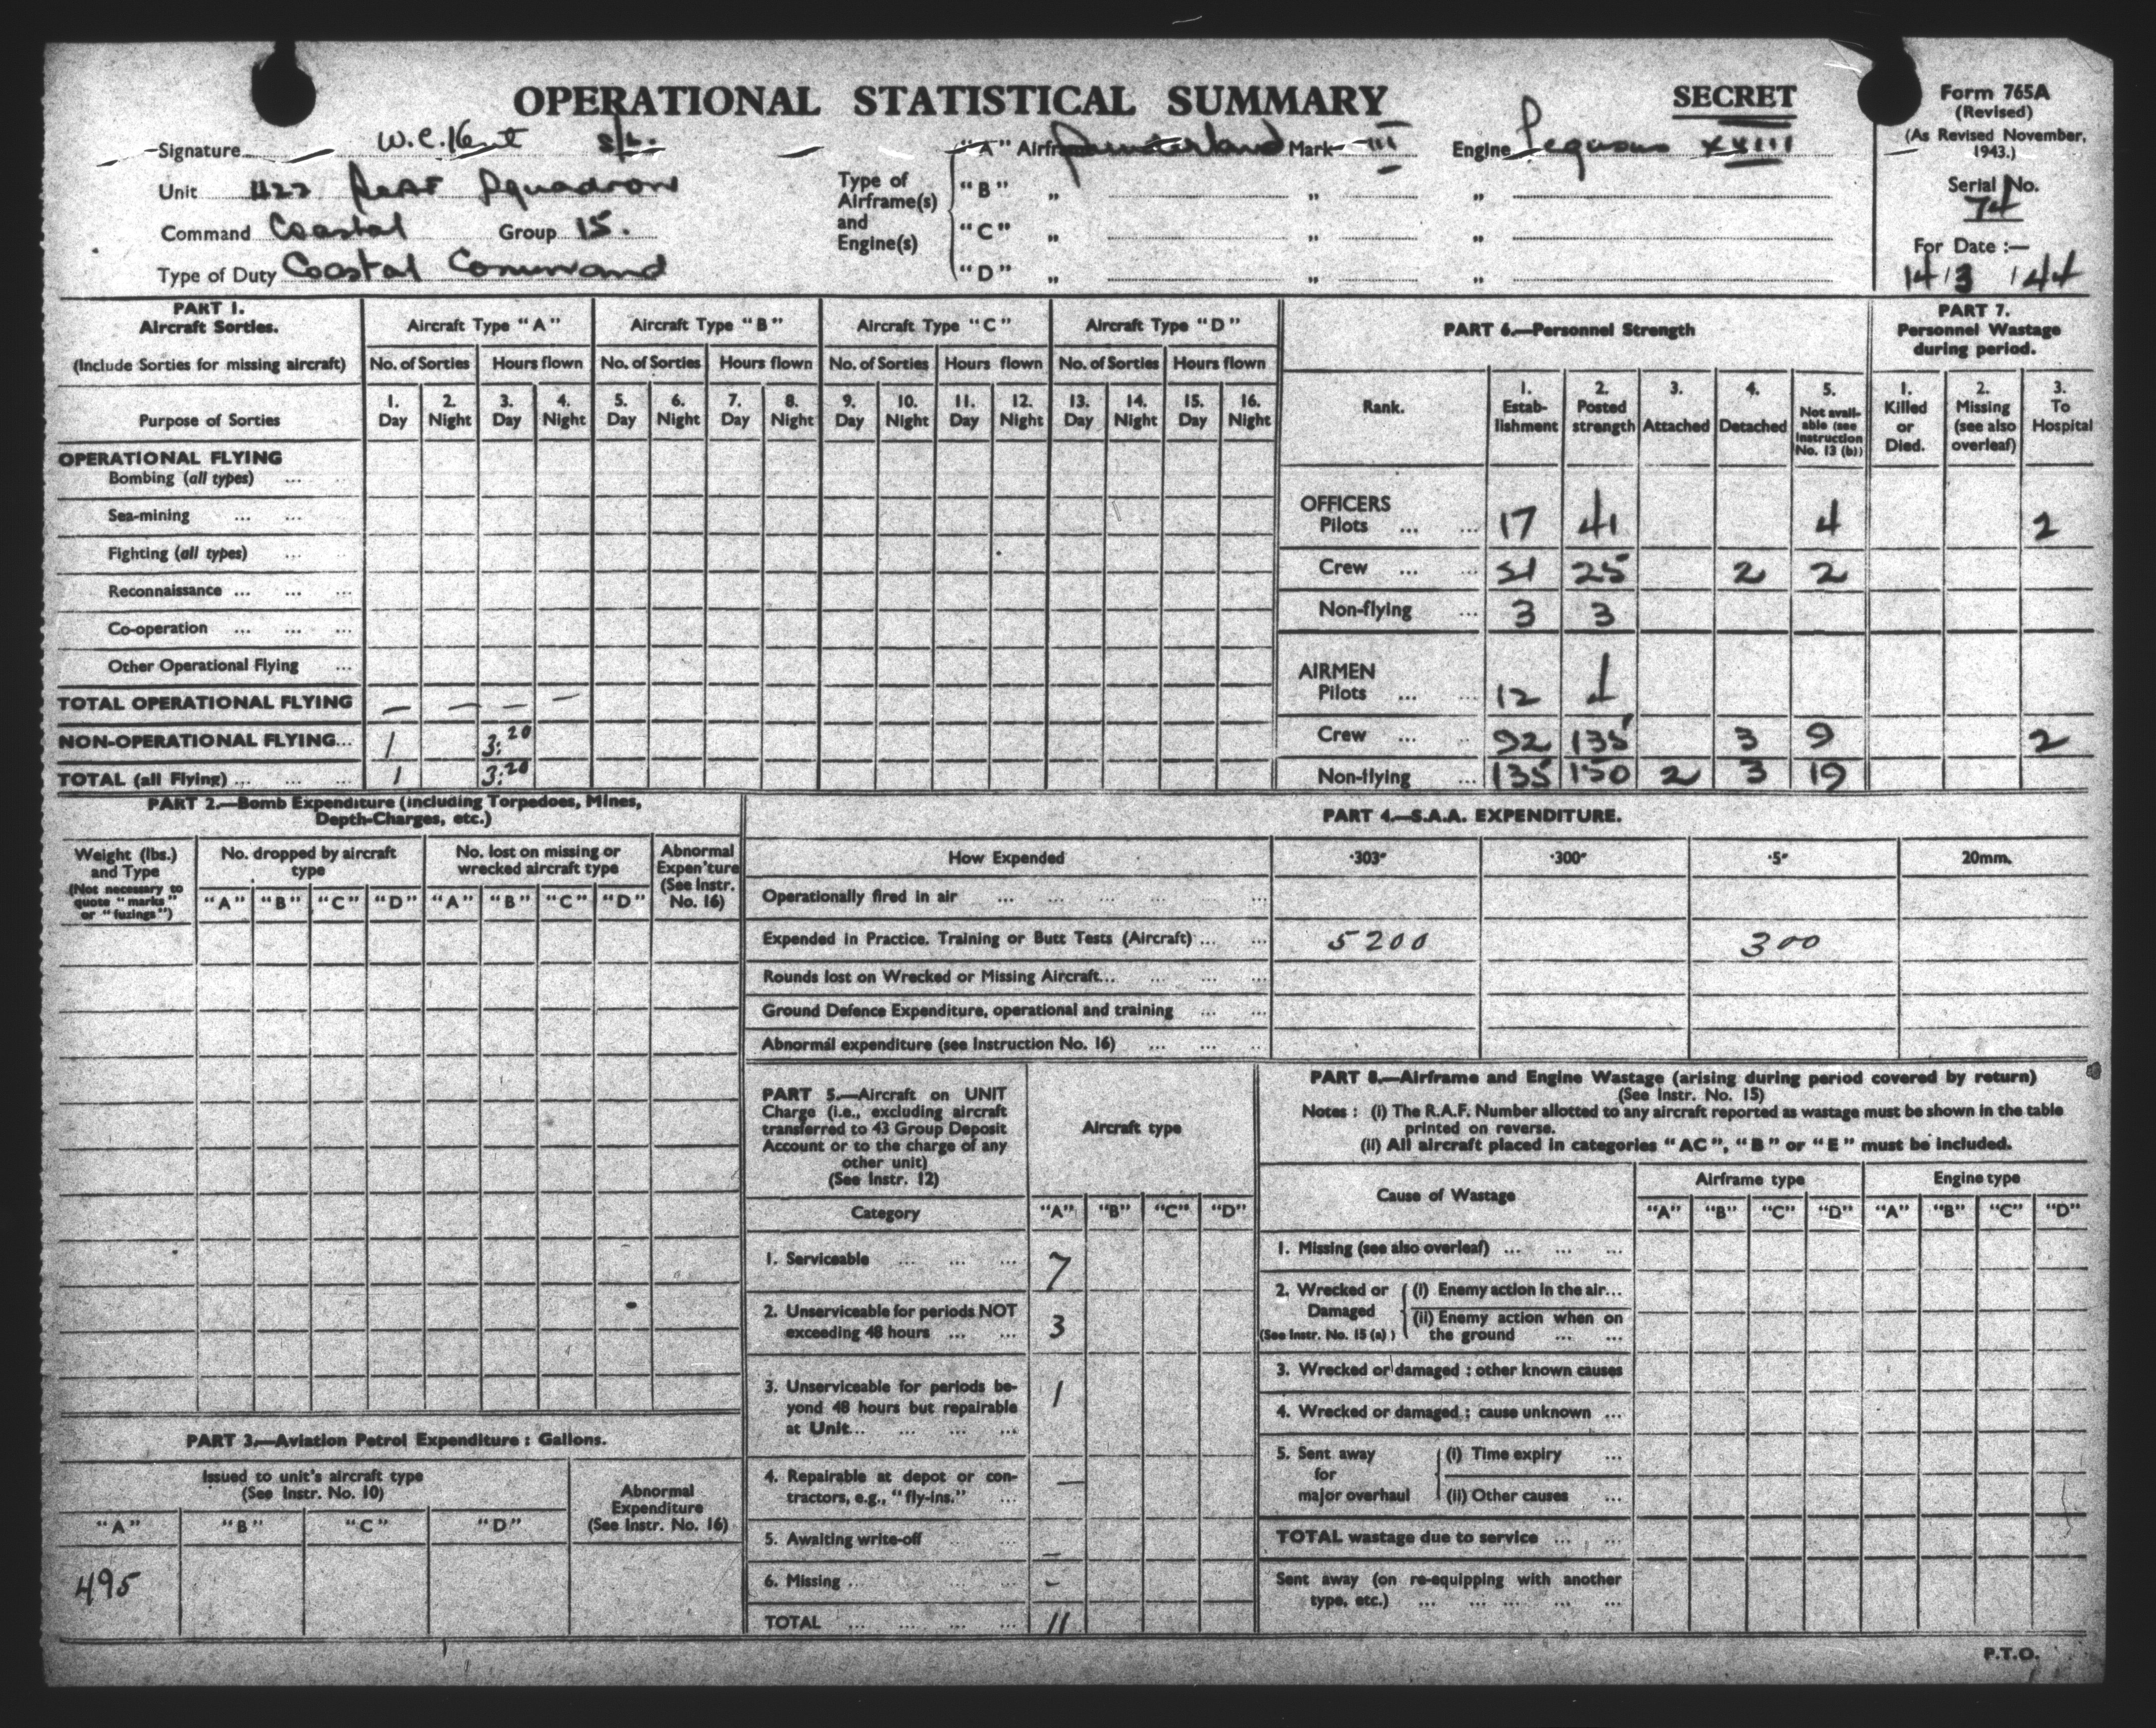 OPERATIONAL STATISTICAL SUMMARY
SECRET
Form 765A
(Revised)
(As Revised November, 1943.)
Serial No.
74
For Date :—
14/3/44
Signature W.C. Kent S/L.
Unit 422 RCAF Squadron
Command Coastal Group 15.
Type of Duty Coastal Command
Type of Airframe(s) and Engine(s)
"A" Airframe Sunderland Mark III Engine Pegasus XVIII
"B" " " "
"C" " " "
"D" " " "
PART 1.
Aircraft Sorties.
(Include Sorties for missing aircraft)
Purpose of Sorties
Aircraft Type "A" Aircraft Type "B" Aircraft Type "C" Aircraft Type "D"
No. of Sorties Hours flown No. of Sorties Hours flown No. of Sorties Hours flown No. of Sorties Hours flown
1. Day 2. Night 3. Day 4. Night 5. Day 6. Night 7. Day 8. Night 9. Day 10. Night 11. Day 12. Night 13. Day 14. Night 15. Day 16. Night
OPERATIONAL FLYING
Bombing (all types) ... ...
Sea-mining ... ...
Fighting (all types) ...
Reconnaissance ... ... ...
Co-operation ... ... ...
Other Operational Flying ...
TOTAL OPERATIONAL FLYING — — — —
NON-OPERATIONAL FLYING... 1 3:20
TOTAL (all Flying) ... ... ... 1 3:20
PART 6.—Personnel Strength
Rank.
1. Estab-lishment 2. Posted strength 3. Attached 4. Detached 5. Not avail-able (see Instruction No. 13 (b))
PART 7.
Personnel Wastage during period.
1. Killed or Died. 2. Missing (see also overleaf) 3. To Hospital
OFFICERS
Pilots ... ... 17 41 4 2
Crew ... ... 51 25 2 2
Non-flying ... 3 3
AIRMEN
Pilots ... ... 12 1
Crew ... ... 92 135 3 9 2
Non-flying ... 135 130 2 3 19
PART 2.—Bomb Expenditure (including Torpedoes, Mines, Depth-Charges, etc.)
Weight (lbs.) and Type
(Not necessary to quote "marks" or "fuzings")
No. dropped by aircraft type
No. lost on missing or wrecked aircraft type
Abnormal Expen'ture (See Instr. No. 16)
"A" "B" "C" "D" "A" "B" "C" "D"
PART 3.—Aviation Petrol Expenditure : Gallons.
Issued to unit's aircraft type
(See Instr. No. 10)
Abnormal Expenditure (See Instr. No. 16)
"A" "B" "C" "D"
495
PART 4.—S.A.A. EXPENDITURE.
How Expended ·303" ·300" ·5" 20mm.
Operationally fired in air ... ... ... ... ...
Expended in Practice. Training or Butt Tests (Aircraft) ... ... 5200 300
Rounds lost on Wrecked or Missing Aircraft... ... ... ...
Ground Defence Expenditure, operational and training ... ...
Abnormal expenditure (see Instruction No. 16) ... ... ...
PART 5.—Aircraft on UNIT
Charge (i.e., excluding aircraft
transferred to 43 Group Deposit
Account or to the charge of any
other unit)
(See Instr. 12)
Aircraft type
Category "A" "B" "C" "D"
1. Serviceable ... ... ... 7
2. Unserviceable for periods NOT
exceeding 48 hours ... ... 3
3. Unserviceable for periods be-
yond 48 hours but repairable
at Unit... ... ... ... 1
4. Repairable at depot or con-
tractors, e.g., "fly-ins." ... —
5. Awaiting write-off ... ... —
6. Missing ... ... ... ... —
TOTAL ... ... ... ... 11
PART 8.—Airframe and Engine Wastage (arising during period covered by return)
(See Instr. No. 15)
Notes : (i) The R.A.F. Number allotted to any aircraft reported as wastage must be shown in the table
printed on reverse.
(ii) All aircraft placed in categories "AC", "B" or "E" must be included.
Cause of Wastage
Airframe type Engine type
"A" "B" "C" "D" "A" "B" "C" "D"
1. Missing (see also overleaf) ... ... ...
2. Wrecked or Damaged
(See Instr. No. 15 (a))
(i) Enemy action in the air...
(ii) Enemy action when on
the ground ... ...
3. Wrecked or damaged : other known causes
4. Wrecked or damaged : cause unknown ...
5. Sent away for major overhaul
(i) Time expiry ...
(ii) Other causes ...
TOTAL wastage due to service ... ...
Sent away (on re-equipping with another
type, etc.) ... ... ... ... ...
P.T.O.